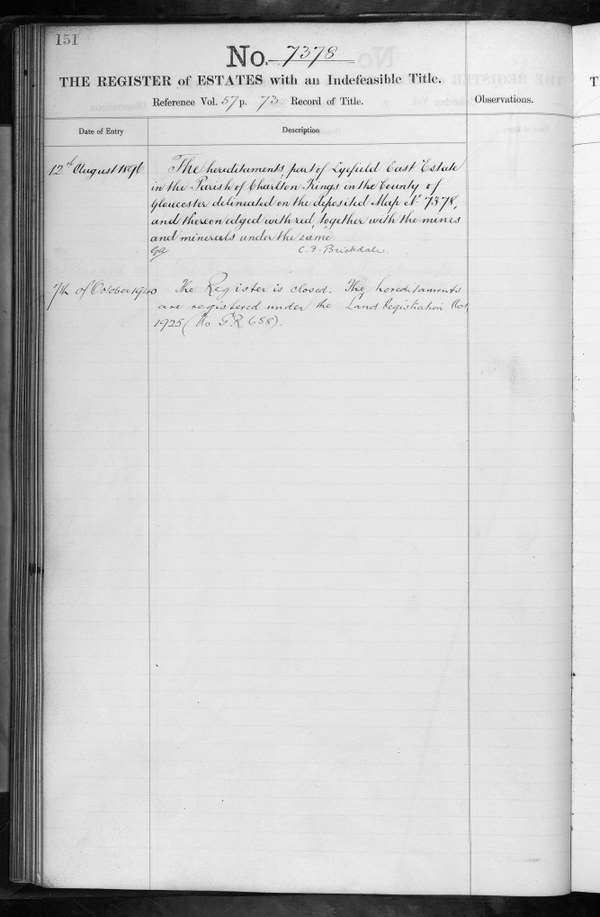 151
No. 7378
THE REGISTER of ESTATES with an Indefeasible Title.
Reference Vol. 57 p. 73 Record of Title.
Observations.
Date of Entry
Description
12th August 1896
The hereditaments, part of Lyefield East Estate
in the Parish of Charlton Kings in the County of
Gloucester delineated on the deposited Map No 7378,
and thereon edged with red, together with the mines
and minerals under the same
C. F. Brickdale.
7th of October 1940
The Register is closed. The hereditaments
are registered under the Land Registration Act,
1925 (No G.R. 658).